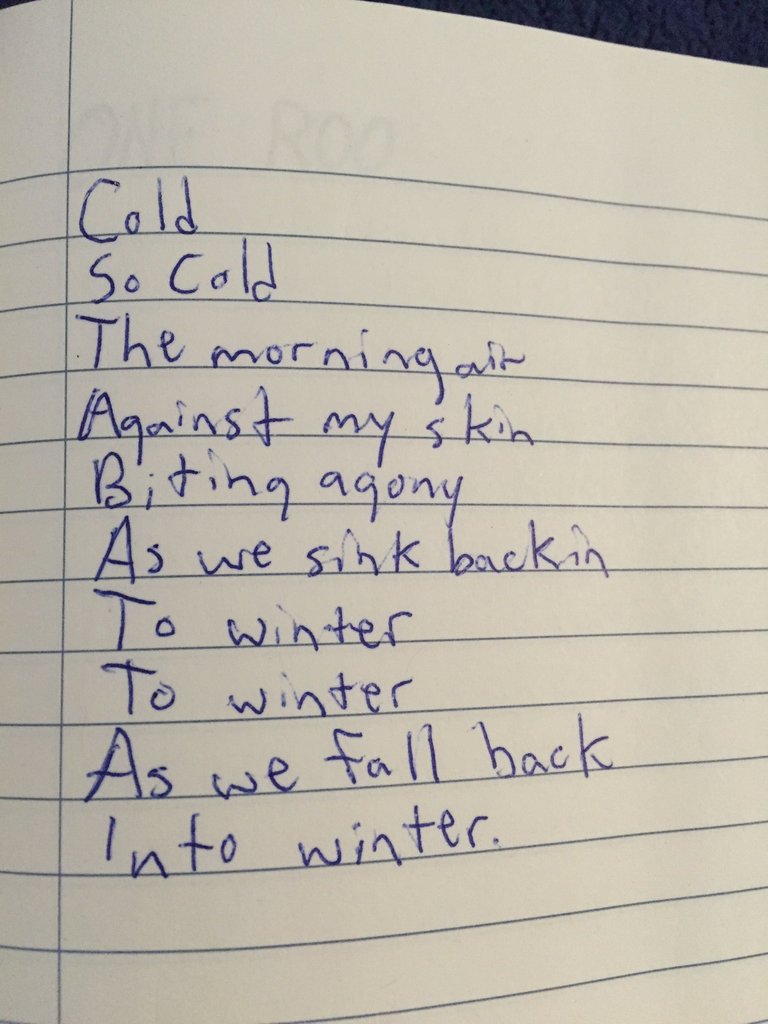 Cold
So Cold
The morning air
Against my skin
Biting agony
As we sink back in
To winter
To winter
As we fall back
Into winter.